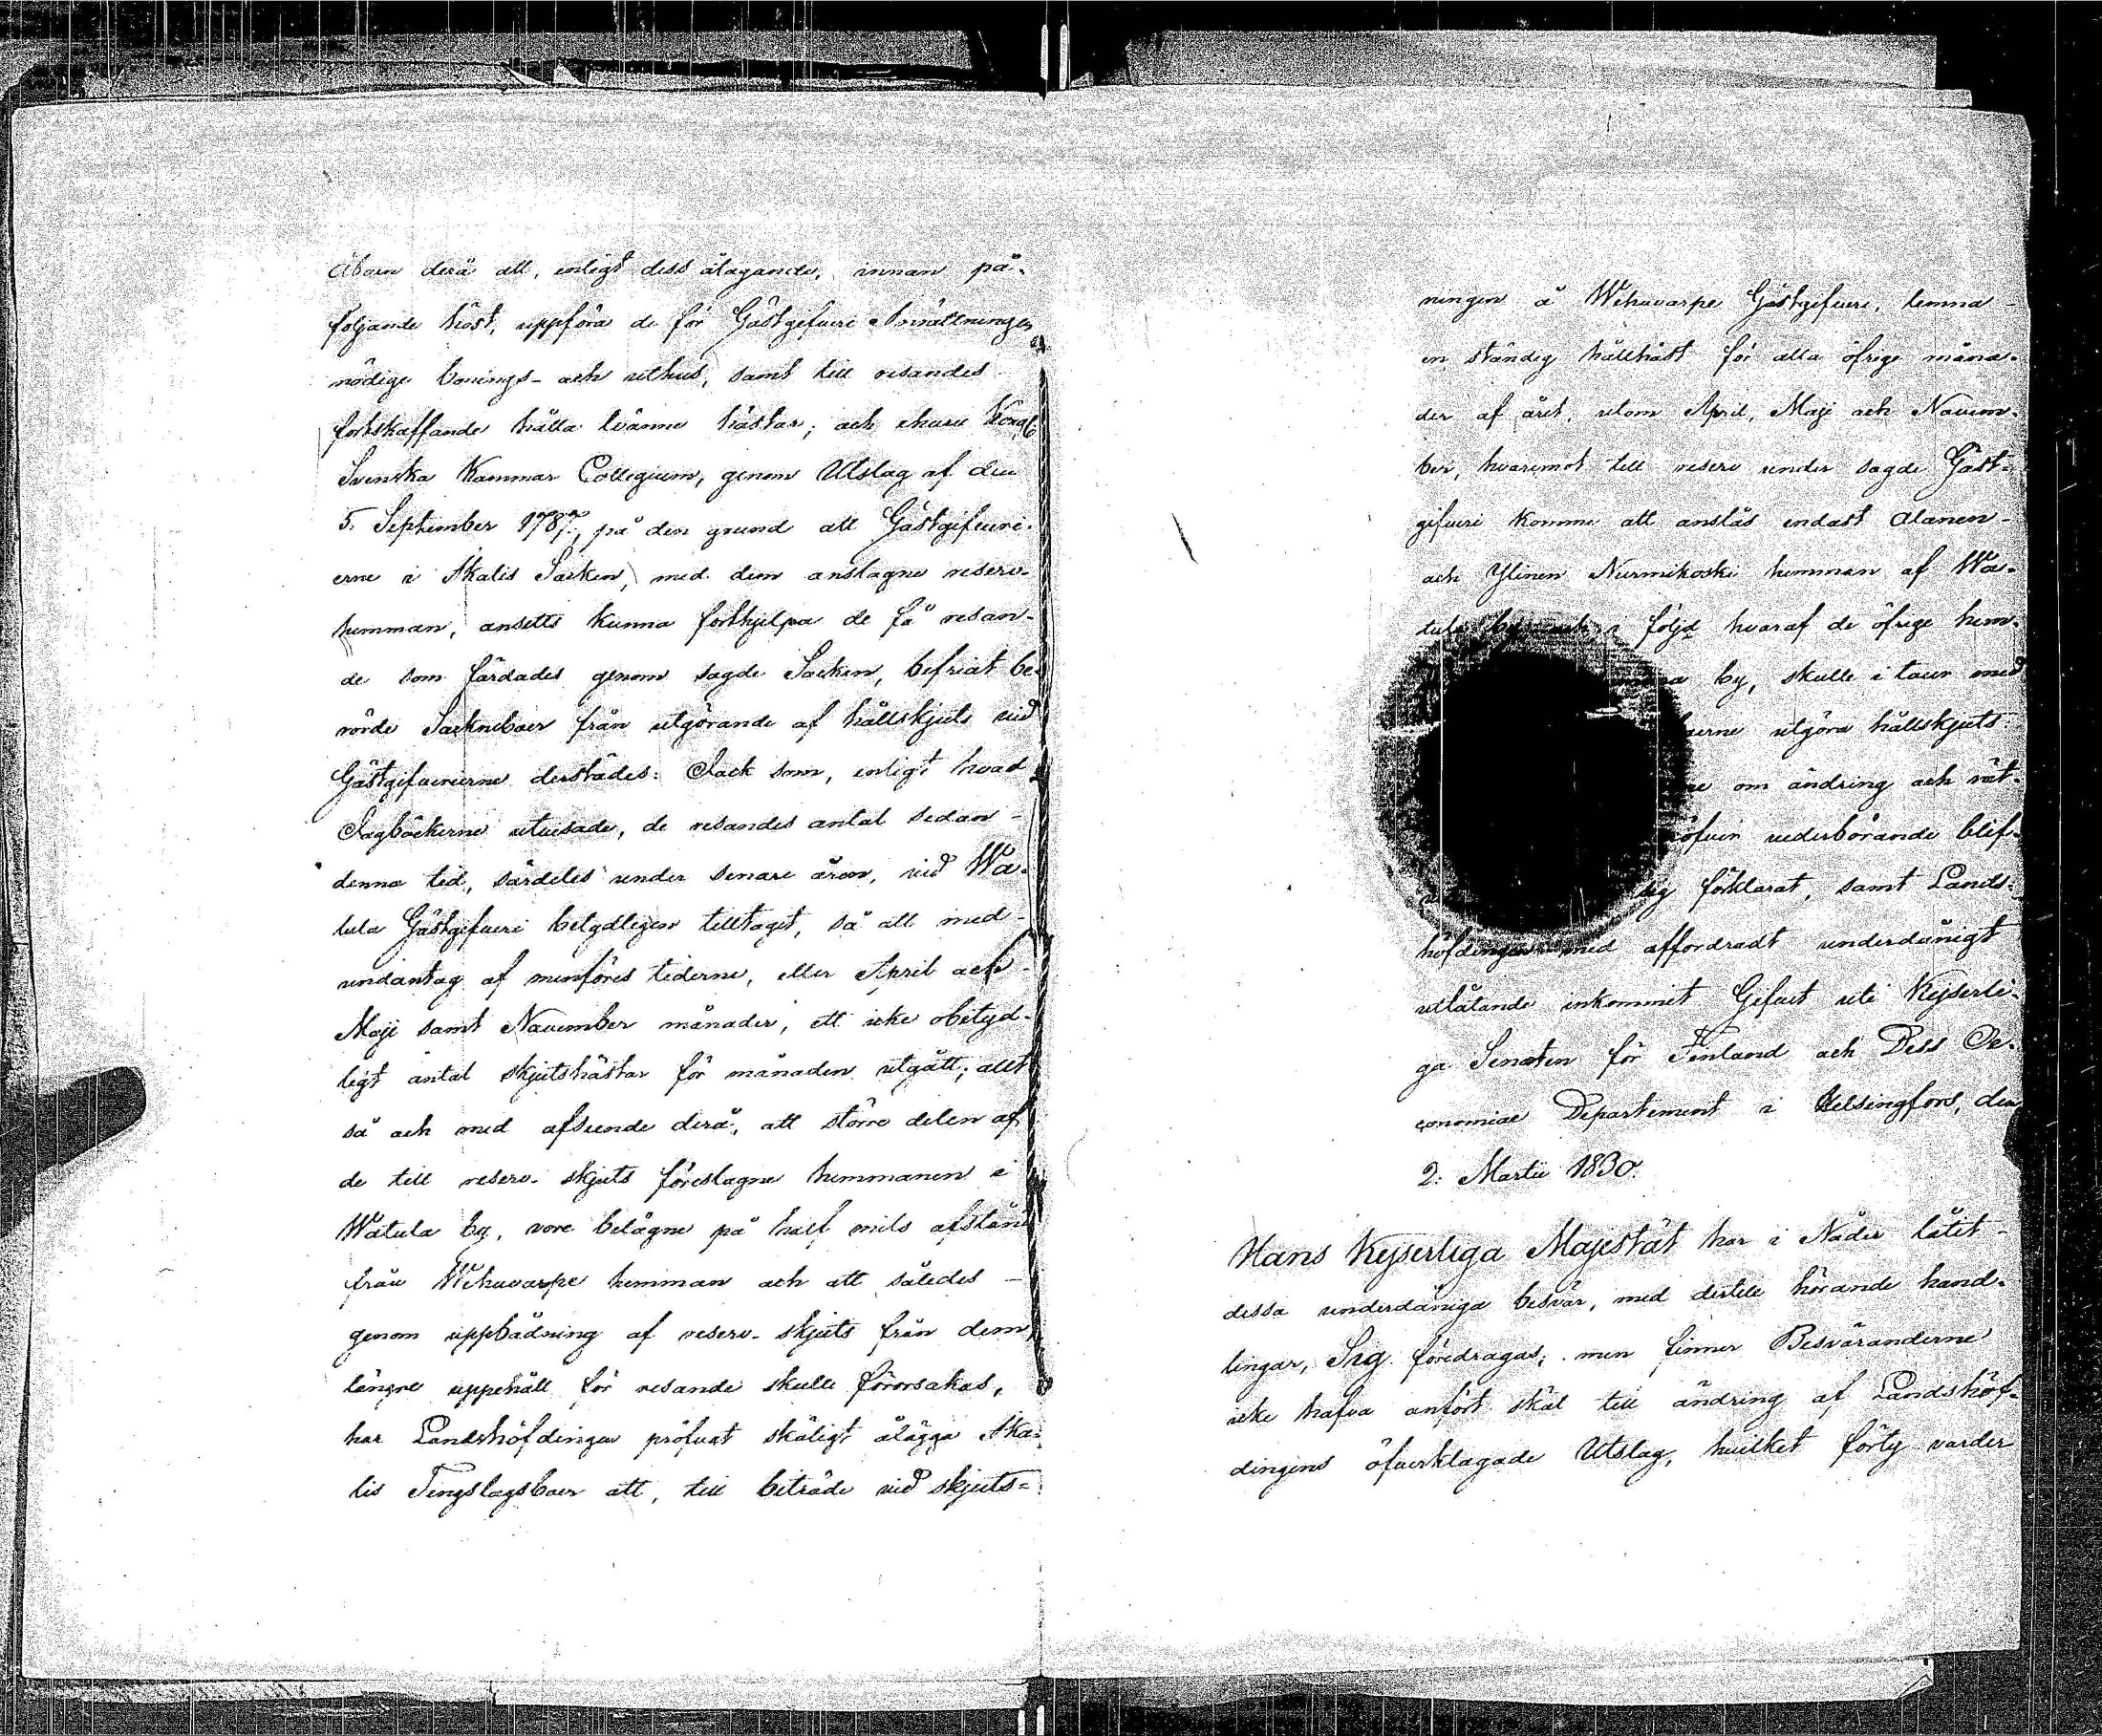 åboen derå att, enligt dess åtagande, innan på-
följande höst, uppföra de för Gästgifveri Inrättningen
nödige bonings- och uthus, samt till resandes
fortskaffande hålla tvänne hästar; och ehuru Kongl.
Svenska Kammar Collegium, genom Utslag af den
5. September 1787., på den grund att Gästgifveri-
erne i Ikalis Socken, med dem anslagne reserv-
hemman, ansetts kunna forthjelpa de få resan-
de som färdades genom sagde Socken, befriat be-
rörde Sockneboer från utgörande af hållskjuts vid
Gästgifverierne derstädes: Dock som, enligt hvad
Dagböckerne utvisade, de resandes antal sedan-
denna tid, särdeles under senare åren, vid Wa-
tula Gästgifveri betydligen tilltagit, så att med-
undantag af menföres tiderne, eller April och
Maji samt November månader, ett icke obetyd-
ligt antal skjutshästar för månaden utgått; allt
så och med afseende derå, att större delen af
de till reserv- skjuts föreslagne hemmanen i
Watula by, vore belägne på half mils afstånd
från Wehuvarpe hemman och att således -
genom uppbådning af reserv- skjuts från dem
längre uppehåll för resande skulle förorsakas,
har Landshöfdingen pröfvat skäligt ålägga Ika-
lis Tingslagsboer att, till biträde vid skjuts-
ningen å Wehuvarpe Gästgifveri, lemna -
en ständig hållhäst för alla öfrige måna-
der af året, utom April, Maji och Novem-
ber, hvaremot till reserv under sagde Gäst-
gifveri komme att anslås endast Alanen-
och Ylinen Nurmikoski hemman af Wa-
tula by och i följd hvaraf de öfrige hem-
by, skulle i tour med
utgöra hållskjuts
om ändring och rät-
vederbörande blif-
sig förklarat, samt Lands-
höfdingen med affordradt underdånigt
utlåtande inkommit Gifvet uti Kejserli-
ga Senaten för Finland och Dess Oe-
conomiae Departement i Helsingfors, den
2. Martii 1830.
Hans Kejserliga Majestät har i Nåder låtit -
dessa underdåniga besvär, med dertill hörande hand-
lingar, Sig föredragas; men finner Besvåranderne
icke hafva anfört skäl till ändring af Landshöf-
dingens öfverklagade Utslag, hvilket förty varder